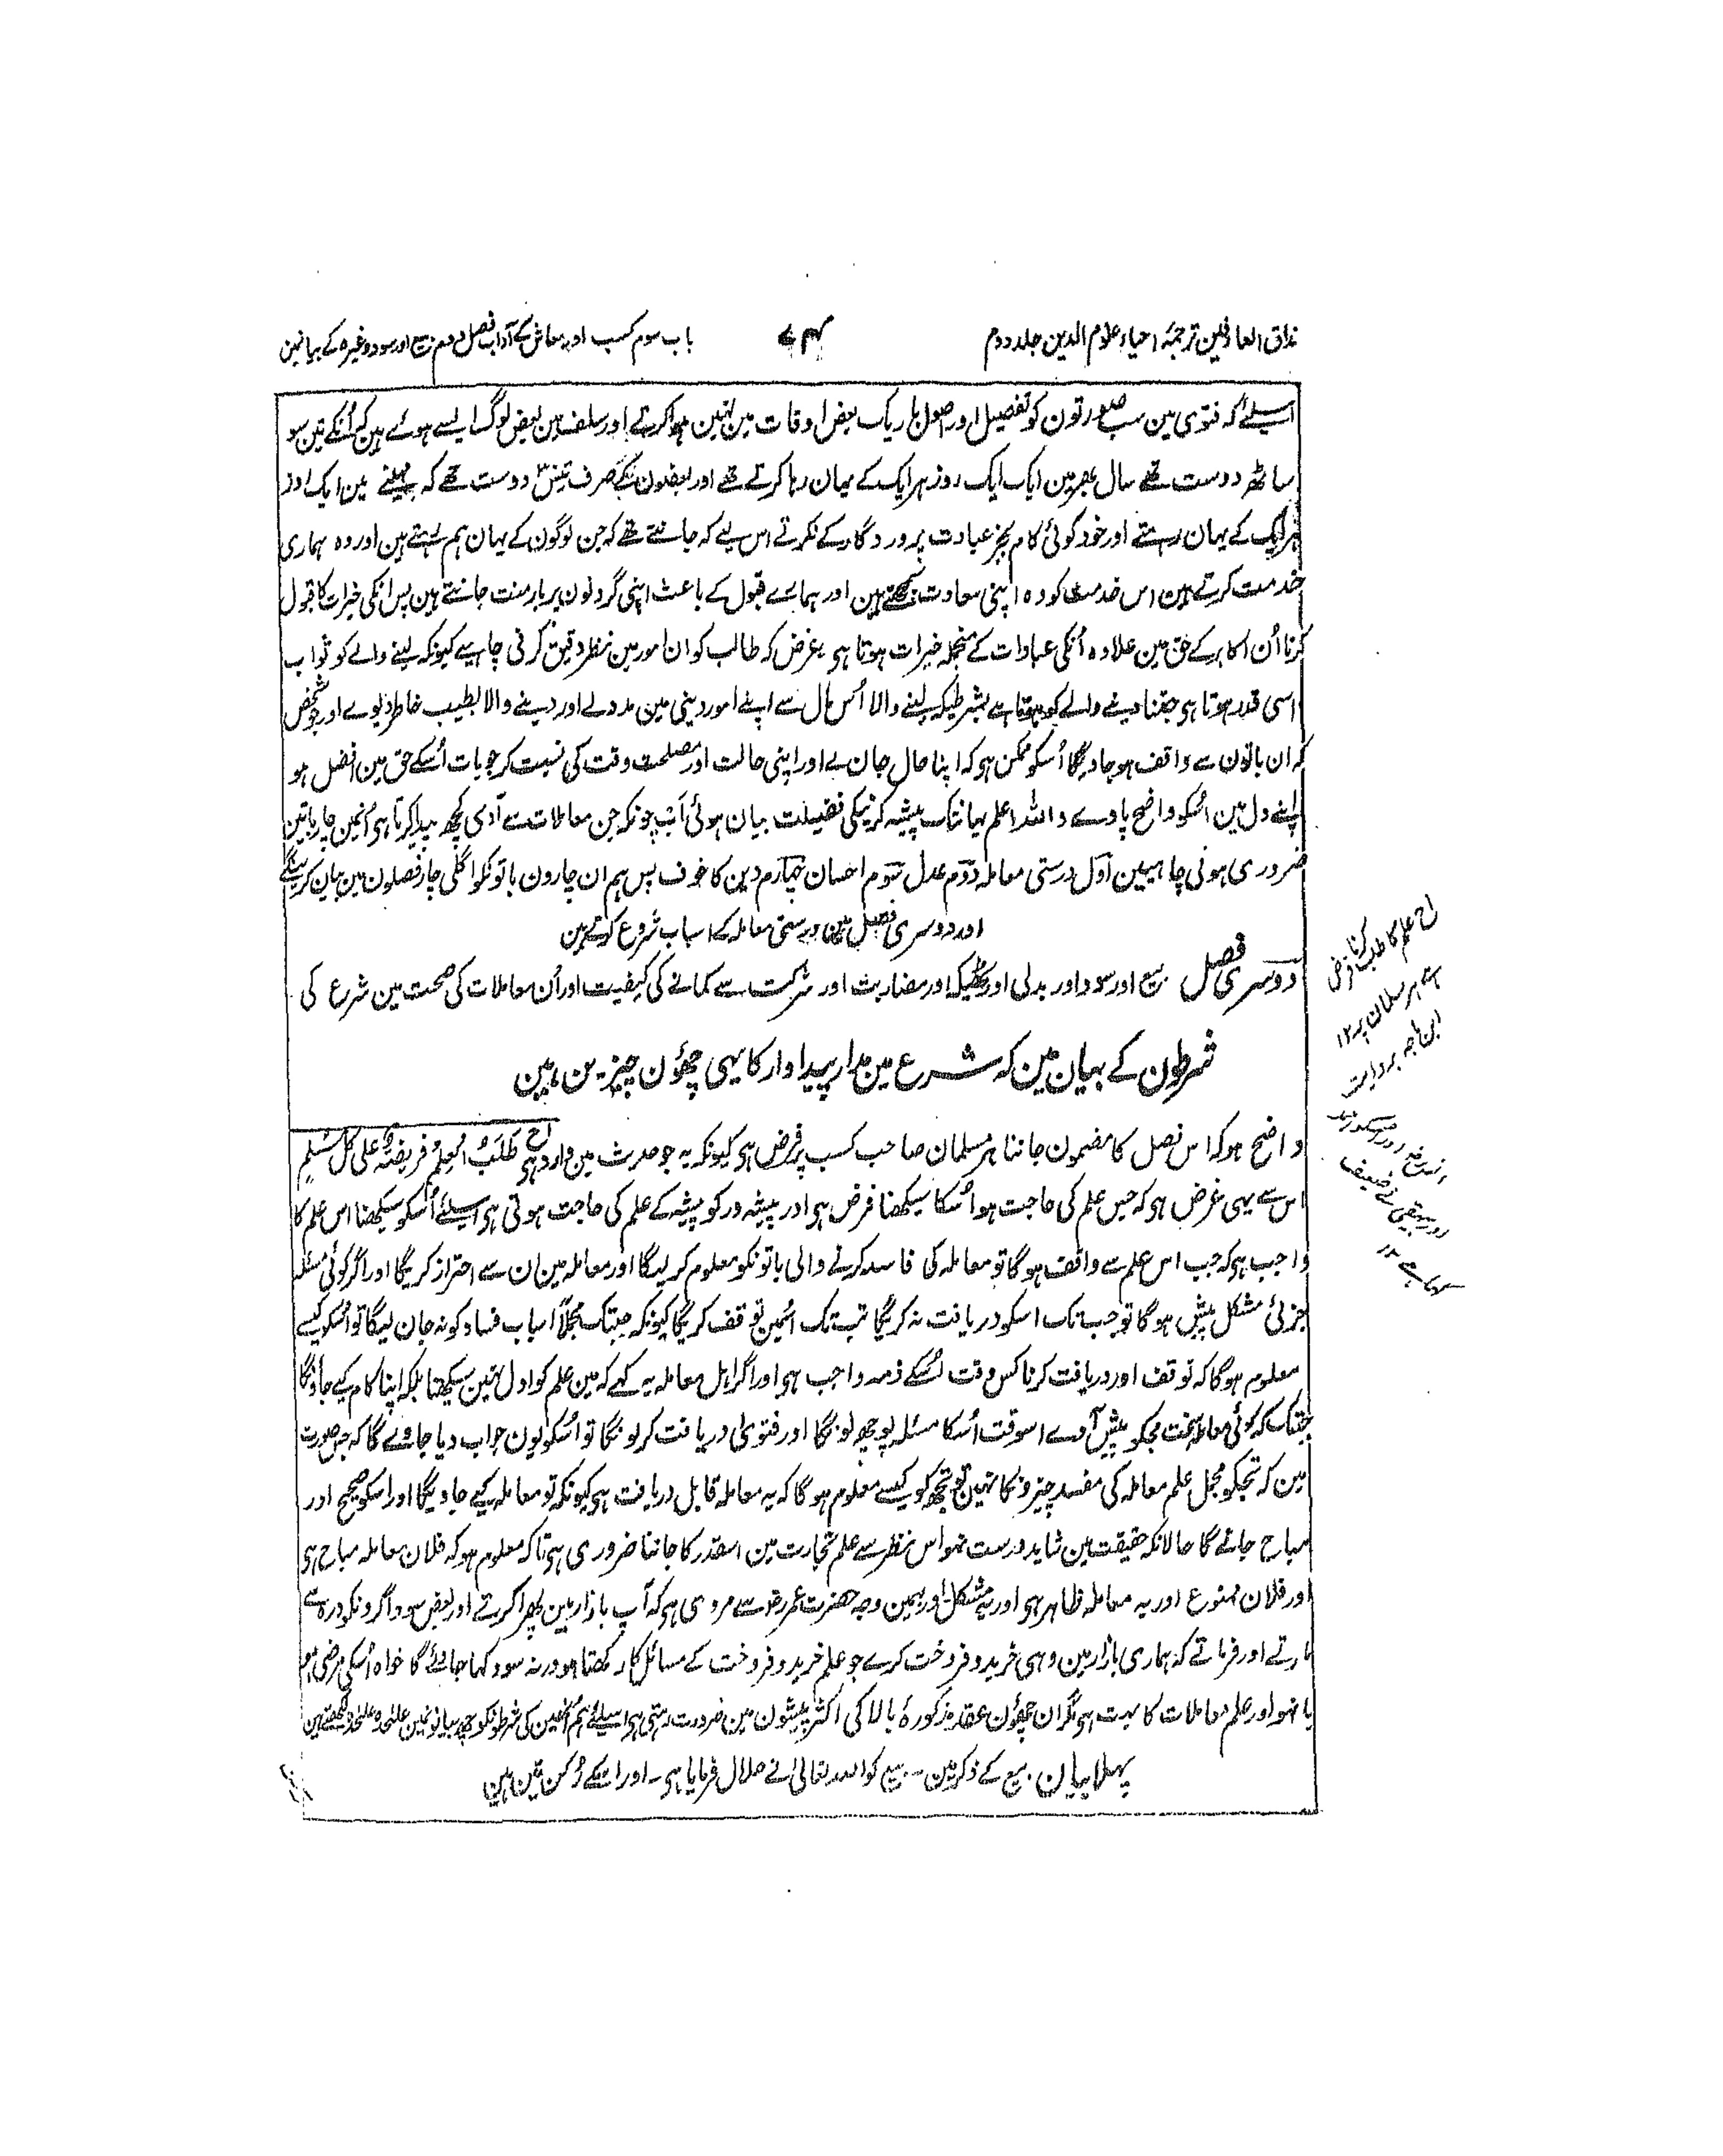 مذاق العارفین ترجمۂ احیاء علوم الدین جلد دوم
۷۴
باب سوم کسب اور معاش کے آداب فصل دوم بیع اور سود وغیرہ کے بیانمین
اسلئے کہ فتوی مین سب صورتون کو تفصیل اور اصول باریک بعض اوقات مین نہین ہوا کرتے اور سلف مین بعض لوگ ایسے ہوئے ہین کہ اُنکے تین سو
ساٹھ دوست تھے سال بھر مین ایک ایک روز ہر ایک کے یہان رہا کرتے تھے اور بعضون کے صرف تیس دوست تھے کہ مہینے مین ایک روز
ہر ایک کے یہان رہتے اور خود کوئی کام بجز عبادت پروردگار کے نکرتے اس لیے کہ جانتے تھے کہ جن لوگون کے یہان ہم رہتے ہین اور وہ ہماری
خدمت کرتے ہین اس خدمت کو وہ اپنی سعادت سمجھتے ہین اور ہمارے قبول کے باعث اپنی گردنون پر بار منت جانتے ہین پس انکی خیرات کا قبول
کرنا اُن اکابر کے حق مین علاوہ اُنکی عبادات کے منجملہ خیرات ہوتا ہی غرض کہ طالب کو ان امور مین نظر دقیق کرنی چاہیے کیونکہ لینے والے کو ثواب
اسی قدر ہوتا ہی جتنا دینے والے کو ہوتا ہے بشرطیکہ لینے والا اُس مال سے اپنے امور دینی مین مدد لے اور دینے والا بطیب خاطر دیوے اور جو شخص
کہ ان باتون سے واقف ہو جاویگا اُسکو ممکن ہو کہ اپنا حال جان لے اور اپنی حالت اور مصلحت وقت کی نسبت کر جو بات اُسکے حق مین افضل ہو
اپنے دل مین اُسکو واضح پاوے واللہ اعلم یہانتک پیشہ کرنیکی فضیلت بیان ہوئی اَب چونکہ جن معاملات سے آدمی کچھ پیدا کرتا ہی اُنمین چار باتین
ضروری ہونی چاہییں اَوّل درستی معاملہ دوّم عدل سوم احسان چہارم دین کا خوف پس ہم ان چارون باتونکو اگلی چار فصلون مین بیان کرینگے
اور دوسری فصل مین درستی معاملہ کے اسباب شروع کرتے ہین
دوسری فصل بیع اور سود اور بدلی اور ٹھیکہ اور مضاربت اور شرکت سے کمانے کی کیفیت اور اُن معاملات کی صحت مین شرع کی
شرطون کے بیان مین کہ شرع مین مدار پیداوار کا یہی چھؤن چیزین ہین
واضح ہو کہ اس فصل کا مضمون جاننا ہر مسلمان صاحب کسب پر فرض ہی کیونکہ یہ جو حدیث مین وارد ہی طَلَبُ العِلمِ فریضۃٌ علی کل مُسلِمٍ
اس سے یہی غرض ہو کہ جس علم کی حاجت ہو اُسکا سیکھنا فرض ہی اور پیشہ ور کو پیشہ کے علم کی حاجت ہوتی ہی اسلئے اُسکو سیکھنا اس علم کا
واجب ہی کہ جب اس علم سے واقف ہوگا تو معاملہ کی فاسد کرنے والی باتونکو معلوم کر لیگا اور معاملہ مین ان سے احتراز کریگا اور اگر کوئی مسئلہ
جزئی مشکل پیش ہوگا تو جب تک اسکو دریافت نہ کریگا تب تک اُسمین توقف کریگا کیونکہ جبتک مجملاً اسباب فساد کو نہ جان لیگا تو اُسکو کیسے
معلوم ہوگا کہ توقف اور دریافت کرنا کس وقت اُسکے ذمہ واجب ہی اور اگر اہل معاملہ یہ کہے کہ مین علم کو اول نہین سیکھتا بلکہ اپنا کام کیے جاؤنگا
جبتک کہ کوئی معاملہ سخت مجکو پیش آوے اسوقت اُسکا مسئلہ پوچھ لونگا اور فتویٰ دریافت کر لونگا تو اُسکو یون جواب دیا جاوے گا کہ جس صورت
مین کہ تجکو مجمل علم معاملہ کی مفسد چیزونکا نہین تو تجھکو کیسے معلوم ہوگا کہ یہ معاملہ قابل دریافت ہی کیونکہ تو معاملہ کیے جاویگا اور اسکو صحیح اور
مباح جانے گا حالانکہ حقیقت مین شاید درست نہو اس نظر سے علم تجارت مین اسقدر کا جاننا ضروری ہی تاکہ معلوم ہو کہ فلان معاملہ مباح ہی
اور فلان ممنوع اور یہ معاملہ ظاہر ہی اور یہ مشکل اور بہمین وجہ حضرت عمر رضہ سے مروی ہی کہ آپ بازار مین پھرا کرتے اور بعض سوداگرونکو درہ سے
مارتے اور فرماتے کہ ہماری بازار مین وہی خرید و فروخت کرے جو علم خرید و فروخت کے مسائل کا رکھتا ہو ورنہ سود کھا جاوے گا خواہ اُسکی مرضی ہو
یا نہو اور علم معاملات کا بہت ہی مگر ان چھؤن عقد مذکورۂ بالا کی اکثر پیشون مین ضرورت رہتی ہی اسلئے ہم اُنھین کی شرطونکو چھ بیانونمین علٰحدہ علٰحدہ لکھتے ہین
پہلا بیان بیع کے ذکر مین ۔ بیع کو اللہ تعالیٰ نے حلال فرمایا ہی ۔ اور اسکے رُکن تین ہین
اح علم کا طلب کرنا فرض
ہے ہر مسلمان پر ۱۲
ابن ماجہ بروایت
انس رضہ
اور بیہقی نے ضعیف
کہا ہے